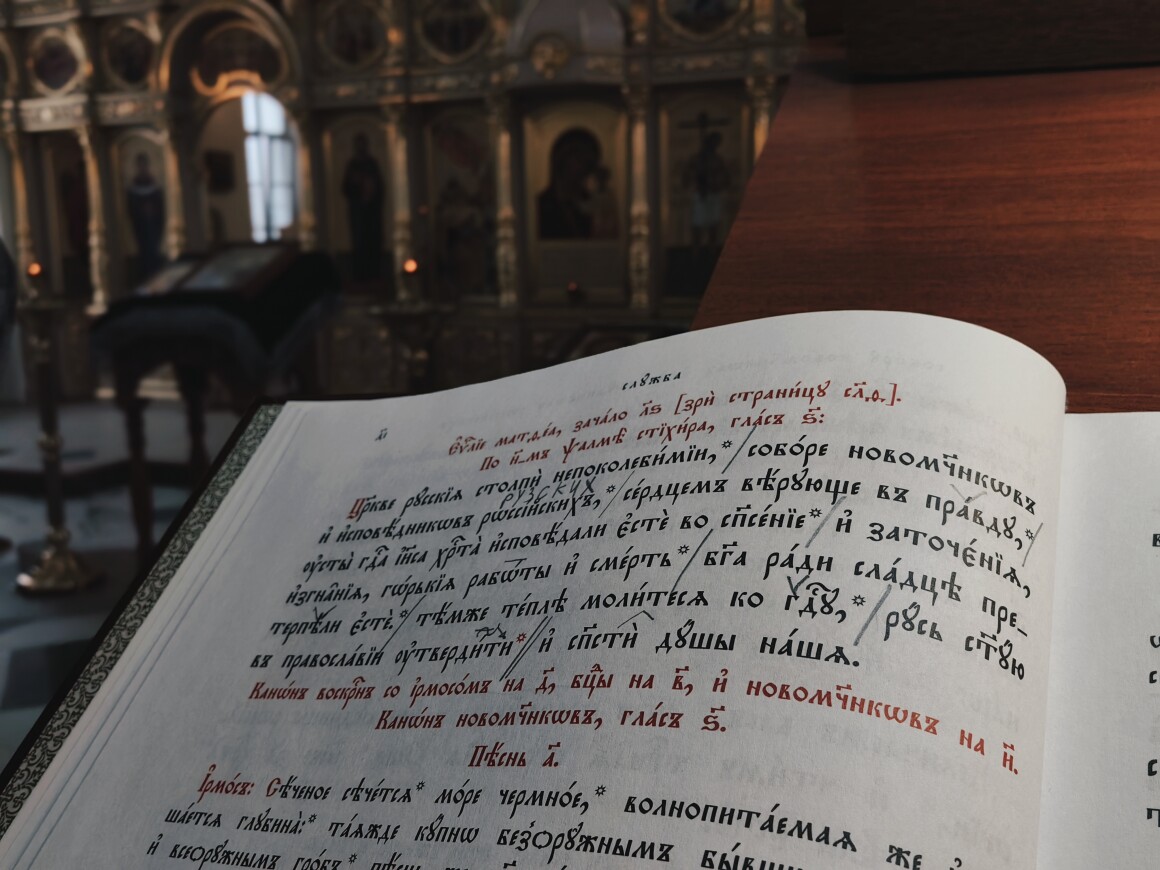 слꙋ́жба
Є҆ѵⷢ҇лїе матѳе́а, зача́ло л҃ѕ [зрѝ страни́цꙋ сл҃д].
По н҃-мъ ѱалмѣ̀ стїхи́ра, гла́съ ѕ҃:
Цр҃кве рꙋ́сскїѧ столпѝ непоколеби́мїи,* собо́ре новомч҃никѡвъ
рꙋзских
и҆ и҆сповѣ́дникѡвъ рѡссі́йскихъ,* се́рдцемъ вѣ́рꙋюще въ пра́вдꙋ,*
ᲂу҆сты̀ гдⷭ҇а і҆и҃са хрⷭ҇та̀ и҆сповѣ́дали є҆стѐ во сп҃се́нїе* и҆ заточє́нїѧ,
и҆згна̑нїѧ, гѡ́рькїѧ рабѡ́ты и҆ сме́рть* бг҃а ра́ди сла́дцѣ пре-
терпѣ́ли є҆стѐ.* тѣ́мже те́плѣ моли́тесѧ ко гдⷭ҇ꙋ,* рꙋ́сь ст҃ꙋ́ю
въ правосла́вїи ᲂу҆тверди́ти* и҆ сп҃стѝ дꙋ́шы на́шѧ.
Канѡ́нъ воскрⷭ҇нъ со і҆рмосо́мъ на д҃, бцⷣы на в҃, и҆ новомч҃никѡвъ на и҃.
Канѡ́нъ новомч҃никѡвъ, гла́съ ѕ҃.
Пѣ́снь а҃.
І҆рмо́съ: Сѣ́ченое сѣче́тсѧ* мо́ре чермно́е,* волнопита́емаѧ же
ша́етсѧ глꙋбина̀:* та́ѧжде кꙋ́пнѡ безѻрꙋ̑жнымъ бы́вши
и҆ всеѻрꙋ̑жнымъ гро́бъ.* пѣ́снь